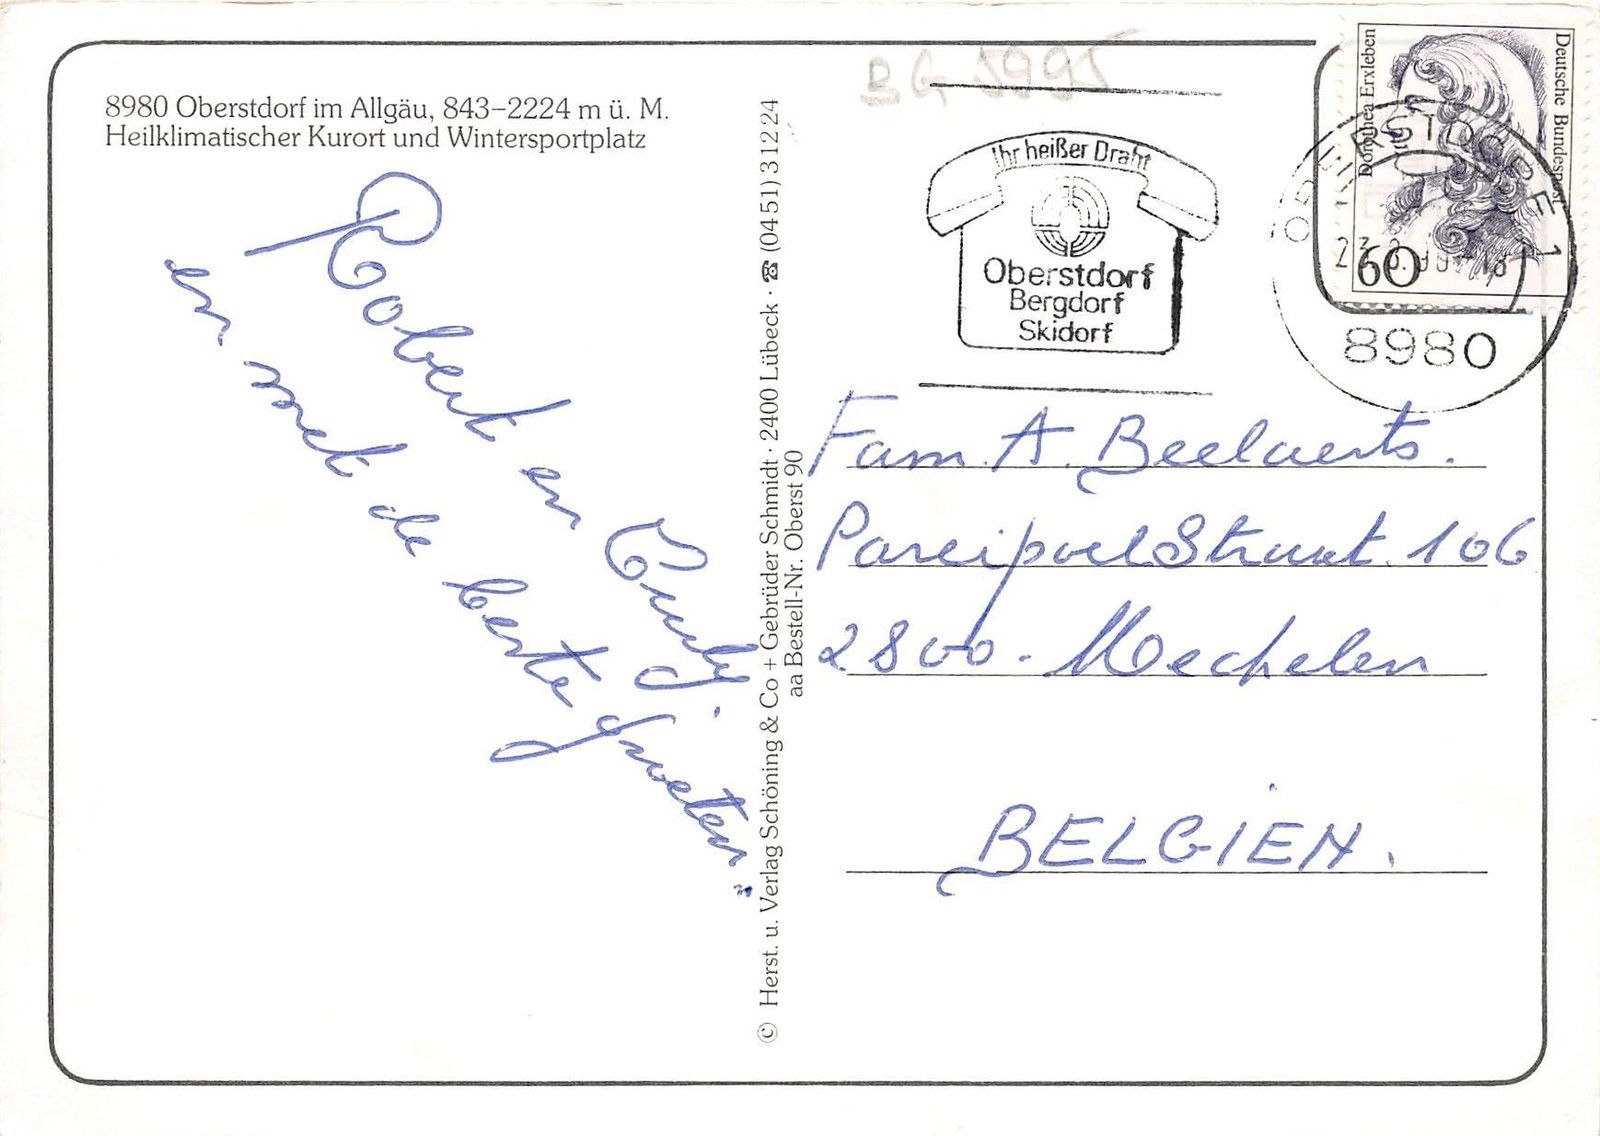 8980 Oberstdorf im Allgäu, 843–2224 m ü. M.
Heilklimatischer Kurort und Wintersportplatz
Robert en
en met de beste groeten
© Herst. u. Verlag Schöning & Co + Gebrüder Schmidt · 2400 Lübeck · ☎ (0451) 3 12 24
aa Bestell-Nr. Oberst 90
BG 3995
Ihr heißer Draht
Oberstdorf
Bergdorf
Skidorf
Dorothea Erxleben
Deutsche Bundespost
60
OBERSTDORF 1
8980
Fam. A. Beelaerts.
Straat. 106
2800. Mechelen
BELGIEN.